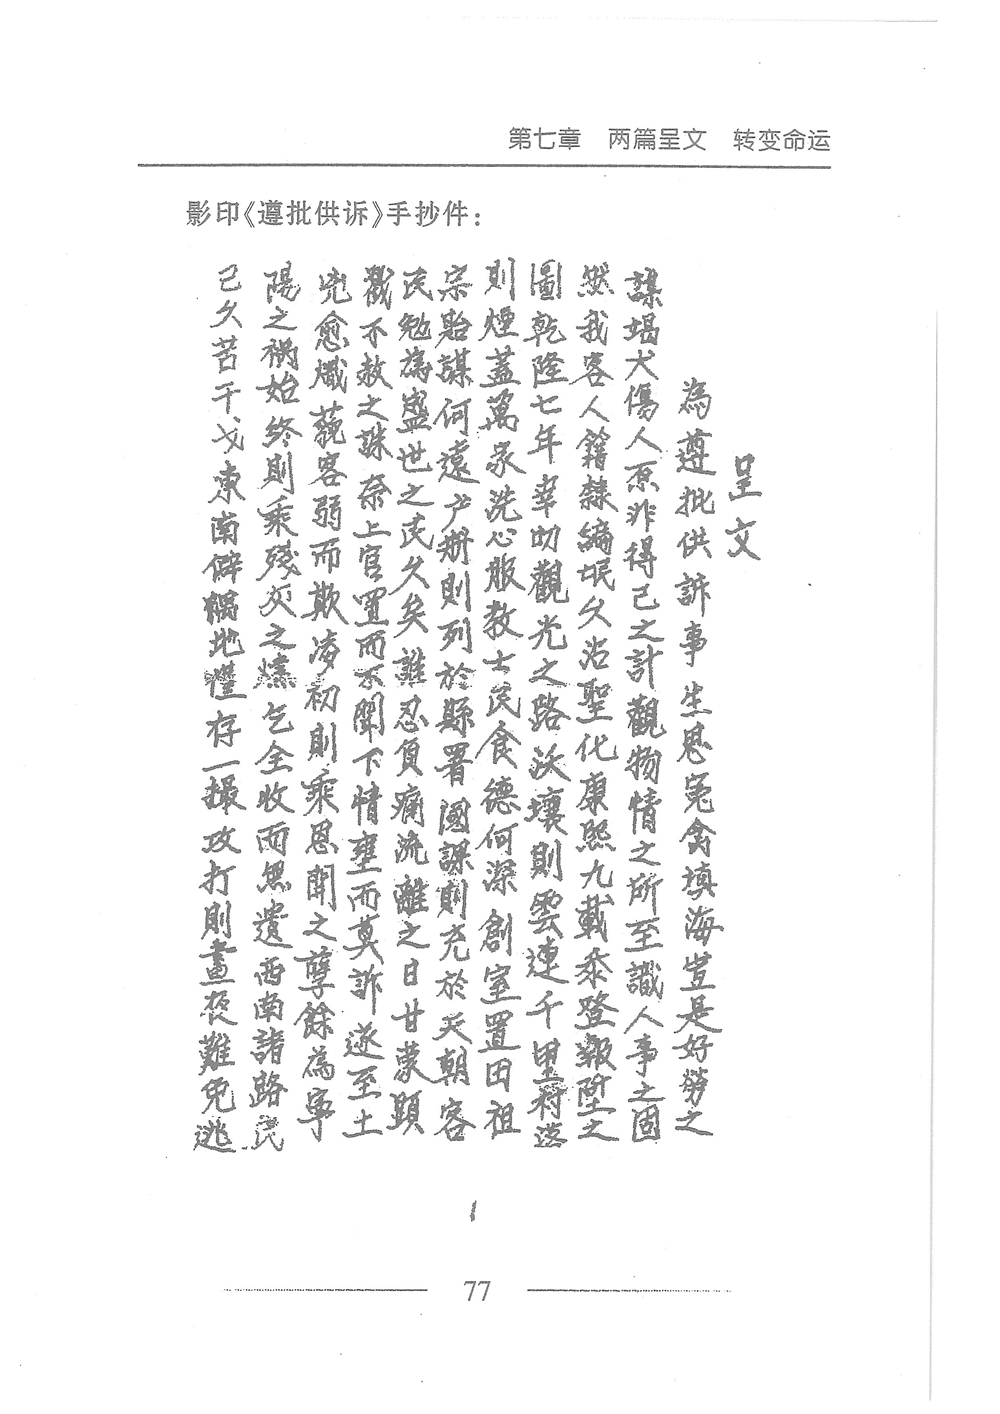 第七章 两篇呈文 转变命运
影印《遵批供诉》手抄件：
呈文
為遵批供訴事生恩冤禽填海豈是好勞之
謀蝎犬傷人原非得己之計觀物情之所至識人事之固
然我客人籍隸編氓久沾聖化康熙九載忝登報墾之
圖乾隆七年幸叨觀光之路沃壤則雲連千里村落
則煙蓋萬家洗心服教士民食德何深創室置田祖
宗貽謀何遠户册則列於縣署國課則充於天朝客
民勉為盛世之民久矣誰忍負痛流離之日甘蒙顯
戮不赦之誅奈上官置而不聞下情壅而莫訴遂至土
兇愈熾藐客弱而欺凌初則乘恩開之孽餘為寧
陽之禍始終則乘殘災之燼乞全收而無遺西南諸路民
已久苦干戈東南僻隅地僅存一撮攻打則晝夜難免逃
1
77